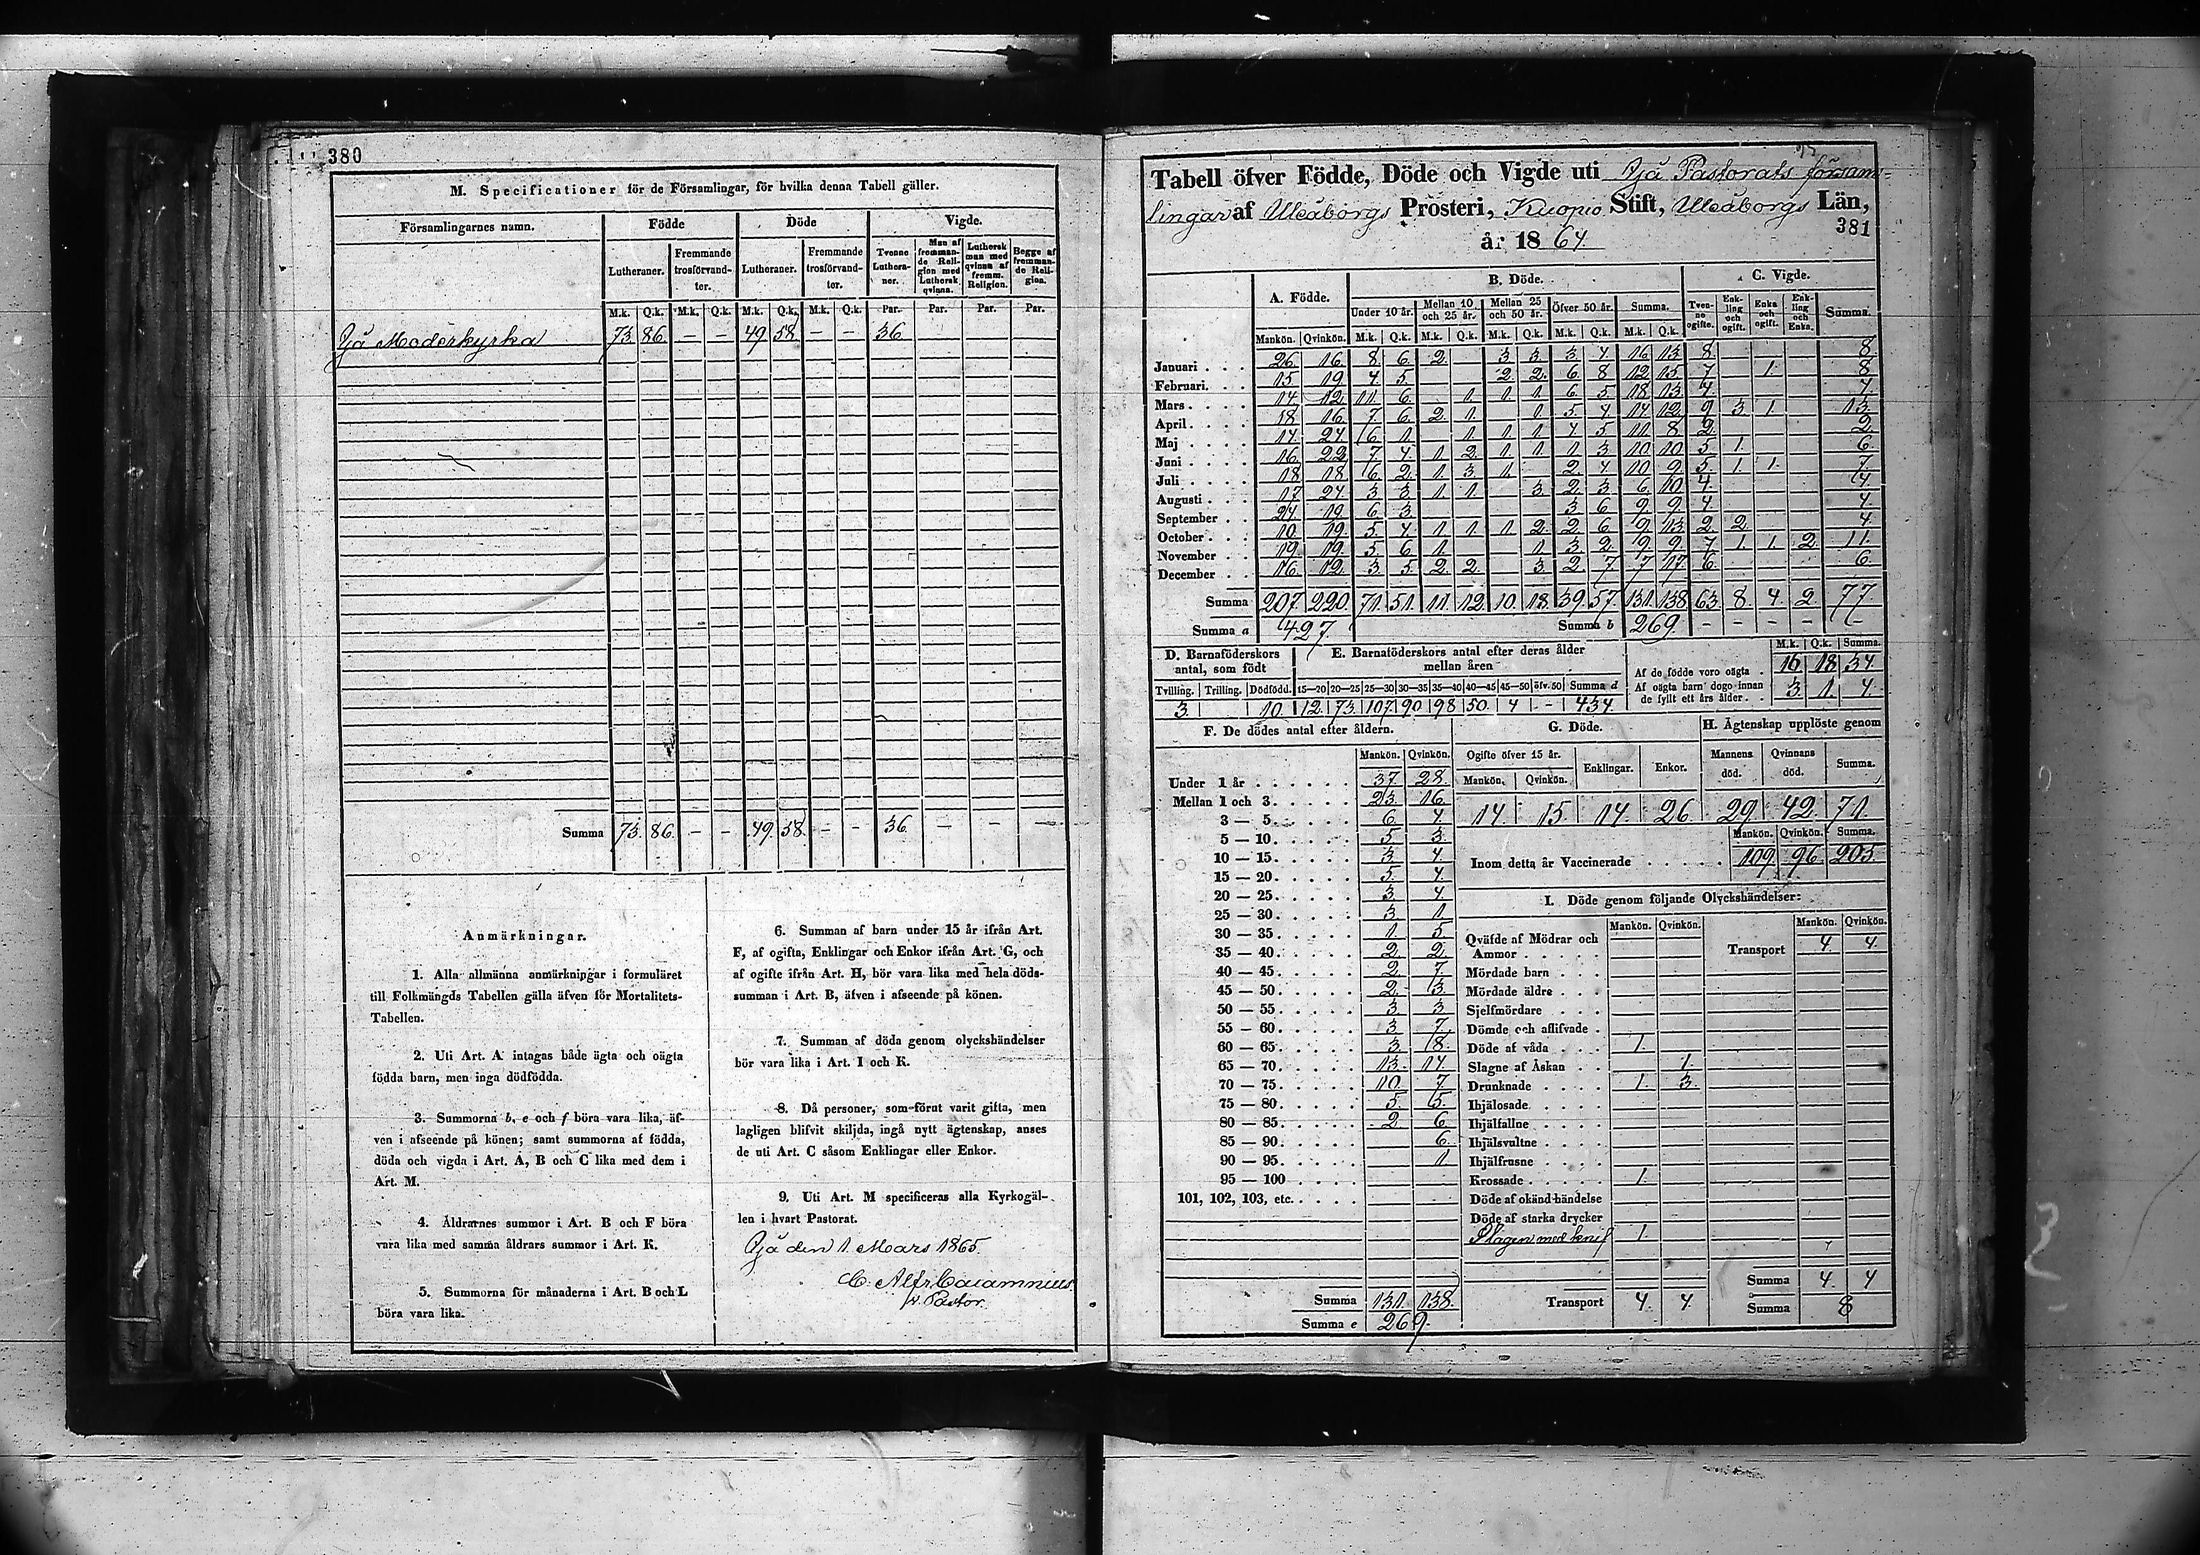 380
M. Specificationer för de Församlingar, för hvilka denna Tabell gäller.
Församlingarnes namn. Födde Döde Vigde.
Lutheraner. Fremmande trosförvandter. Lutheraner. Fremmande trosförvandter. Tvenne Lutheraner. Man af fremmande Religion med Luthersk qvinna. Luthersk man med qvinna af fremm. Religion. Begge af fremmande Religion.
M.k. Q.k. M.k. Q.k. M.k. Q.k. M.k. Q.k. Par. Par. Par. Par.
Ijå Moderkyrka 73 86 – – 49 58 – – 36
Summa 73. 86. – – 49. 58. – – 36. – – –
Anmärkningar.
1. Alla allmänna anmärkningar i formuläret
till Folkmängds Tabellen gälla äfven för Mortalitets-
Tabellen.
2. Uti Art. A intagas både ägta och oägta
födda barn, men inga dödfödda.
3. Summorna b, e och f böra vara lika, äf-
ven i afseende på könen; samt summorna af födda,
döda och vigda i Art. A, B och C lika med dem i
Art. M.
4. Åldrarnes summor i Art. B och F böra
vara lika med samma åldrars summor i Art. K.
5. Summorna för månaderna i Art. B och L
böra vara lika.
6. Summan af barn under 15 år ifrån Art.
F, af ogifta, Enklingar och Enkor ifrån Art. G, och
af ogifte ifrån Art. H, bör vara lika med hela döds-
summan i Art. B, äfven i afseende på könen.
7. Summan af döda genom olyckshändelser
bör vara lika i Art. I och K.
8. Då personer, som förut varit gifta, men
lagligen blifvit skiljda, ingå nytt ägtenskap, anses
de uti Art. C såsom Enklingar eller Enkor.
9. Uti Art. M specificeras alla Kyrkogäl-
len i hvart Pastorat.
Ijå den 1. Mars 1865.
v. Pastor.
Tabell öfver Födde, Döde och Vigde uti Ijå Pastorats försam-
lingar af Uleåborgs Prosteri, Kuopio Stift, Uleåborgs Län,
381
år 1864.
A. Födde. B. Döde. C. Vigde.
Under 10 år. Mellan 10 och 25 år. Mellan 25 och 50 år. Öfver 50 år. Summa. Tvenne ogifte. Enkling och ogift. Enka och ogift. Enkling och Enka. Summa.
Mankön. Qvinkön. M.k. Q.k. M.k. Q.k. M.k. Q.k. M.k. Q.k. M.k. Q.k.
Januari 26. 16. 8. 6. 2. 3. 3. 3. 4. 16. 13. 8. 8.
Februari 15. 19. 4. 5. 2. 2. 6. 8. 12. 15. 7. 1. 8.
Mars 14. 12. 11. 6. 1. 1. 1. 6. 5. 18. 13. 4. 4.
April 18. 16. 7. 6. 2. 1. 1. 5. 4. 14. 12. 9. 3. 1. 13.
Maj 14. 24. 6. 1. 1. 1. 1. 4. 5. 11. 8. 2. 2.
Juni 16. 22. 7. 4. 1. 2. 1. 1. 1. 3. 10. 10. 5. 1. 6.
Juli 18. 18. 6. 2. 1. 3. 1. 2. 4. 10. 9. 5. 1. 1. 7.
Augusti 17. 24. 3. 3. 1. 1. 3. 2. 3. 6. 10. 4. 4.
September 24. 19. 6. 3. 3. 6. 9. 9. 4. 4.
October 10. 19. 5. 4. 1. 1. 1. 2. 2. 6. 9. 13. 2. 2. 4.
November 19. 19. 5. 6. 1. 1. 3. 2. 9. 9. 7. 1. 1. 2. 11.
December 16. 12. 3. 5. 2. 2. 3. 2. 7. 7. 17. 6. 6.
Summa 207. 220. 71. 51. 11. 12. 10. 18. 39. 57. 131. 138. 63. 8. 4. 2. 77
Summa a 427. Summa b 269. – – – – –
D. Barnaföderskors antal, som födt E. Barnaföderskors antal efter deras ålder mellan åren
M.k. Q.k. Summa.
Af de födde voro oägta 16 18 34
Af oägta barn dogo innan de fyllt ett års ålder 3. 1. 4.
Tvilling. Trilling. Dödfödd. 15—20 20—25 25—30 30—35 35—40 40—45 45—50 öfv. 50 Summa d
3. 10. 12. 73. 107. 90 98 50. 4 – 434
F. De dödes antal efter åldern. G. Döde. H. Ägtenskap upplöste genom
Mankön. Qvinkön. Ogifte öfver 15 år. Enklingar. Enkor. Mannens död. Qvinnans död. Summa.
Mankön. Qvinkön.
14. 15 14. 26. 29 42. 71.
Mankön. Qvinkön. Summa.
Inom detta år Vaccinerade 109. 96. 205.
Under 1 år 37. 28.
Mellan 1 och 3 23. 16.
3 — 5 6 4.
5 — 10 5 3.
10 — 15 3 4.
15 — 20 5. 4.
20 — 25 3. 4
25 — 30 3. 1.
30 — 35 1. 5
35 — 40 2. 2.
40 — 45 2. 7.
45 — 50 2. 3.
50 — 55 3 3
55 — 60 3. 7.
60 — 65 3. 8.
65 — 70 13. 14.
70 — 75 10. 7
75 — 80 5. 5.
80 — 85 2 6.
85 — 90 6.
90 — 95 1.
95 — 100
101, 102, 103, etc.
Summa 131. 138.
Summa e 269.
I. Döde genom följande Olyckshändelser:
Mankön. Qvinkön. Mankön. Qvinkön.
Qväfde af Mödrar och Ammor Transport 4. 4.
Mördade barn
Mördade äldre
Sjelfmördare
Dömde och aflifvade
Döde af våda 1.
Slagne af Åskan 1.
Drunknade 1. 3.
Ihjälosade
Ihjälfallne
Ihjälsvultne
Ihjälfrusne
Krossade 1.
Döde af okänd händelse
Döde af starka drycker
Slagen med knif 1.
Summa 4. 4
Transport 4. 4. Summa 8